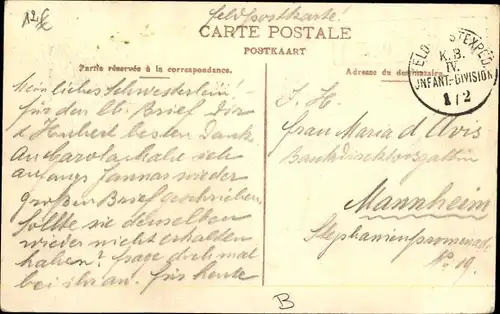 Feldpostkarte!
CARTE POSTALE
POSTKAART
Partie réservée à la correspondance.
Adresse du destinataire.
K. B.
IV.
INFANT.-DIVISION
1/2
Mein liebes Schwesterlein!
für den lb. Brief Dir
u. Hubert besten Dank.
An Carola habe ich
anfangs Januar wieder
großen Brief geschrieben,
sollte sie denselben
wieder nicht erhalten
haben? frage doch mal
bei ihr an. für heute
Frau Maria d'Avis
Bankdirektorsgattin
Mannheim
Stephanienpromenade
No 19.
B